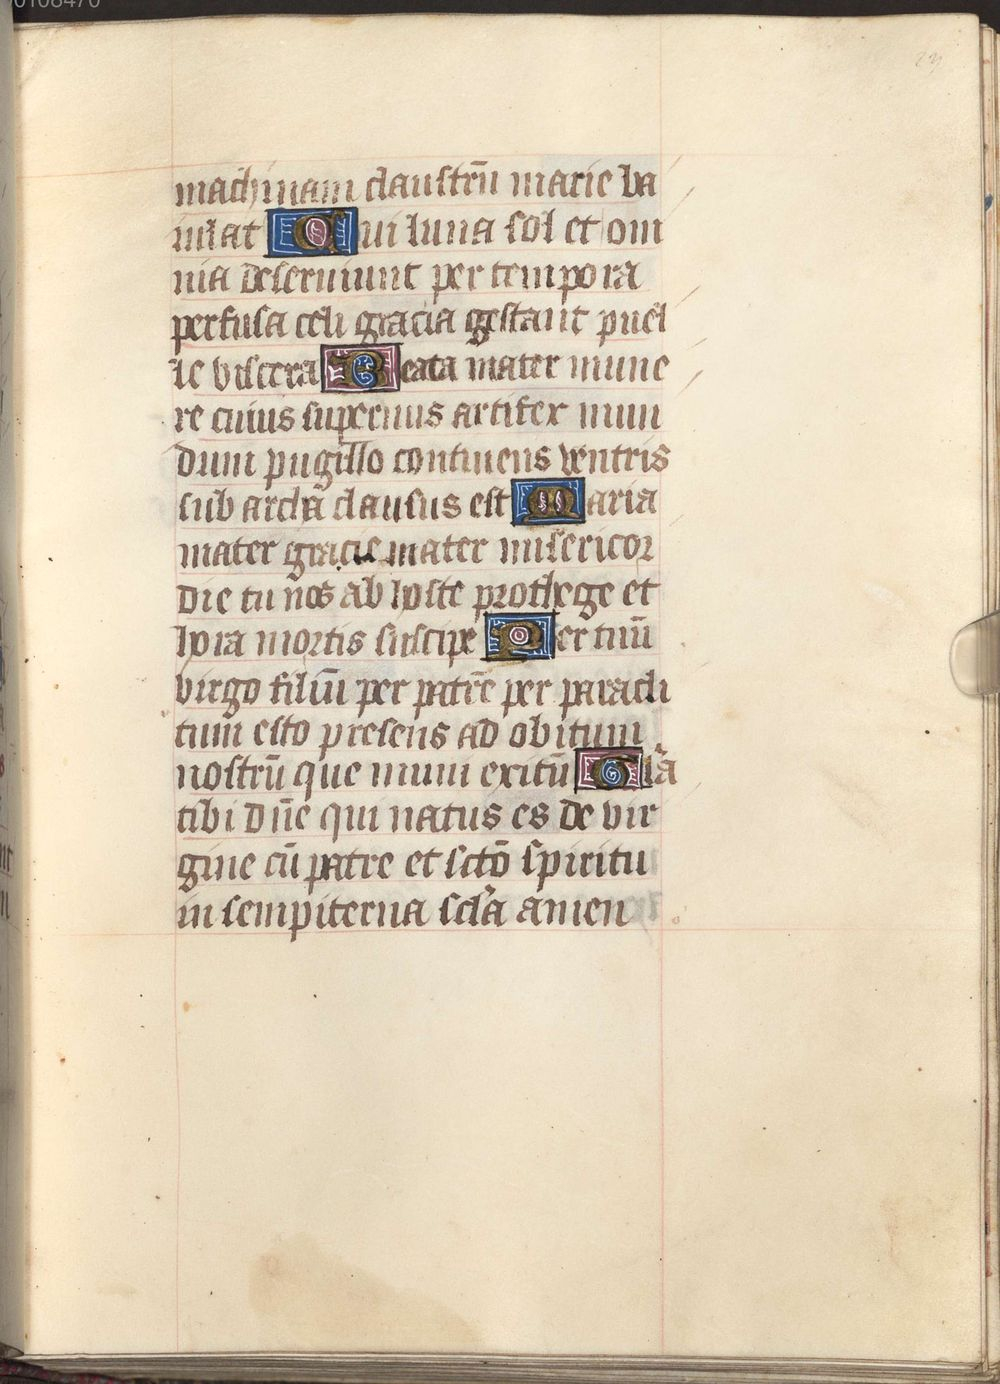 00108470
23
machinam claustrū marie ba
iulat Cui luna sol et om
nia deseruiunt per tempora
perfusa celi gracia gestant puel
le viscera Beata mater mune
re cuius supernus artifex mun
dum pugillo continens ventris
sub archā clausus est Maria
mater gracie mater misericor
die tu nos ab hoste prothege et
hora mortis suscipe Per tuū
virgo filiū per patrē per paracli
tum esto presens ad obitum
nostrū que muni exitū Gl̄ia
tibi dn̄e qui natus es de vir
gine cū patre et sctō spiritu
in sempiterna scl̄a amen